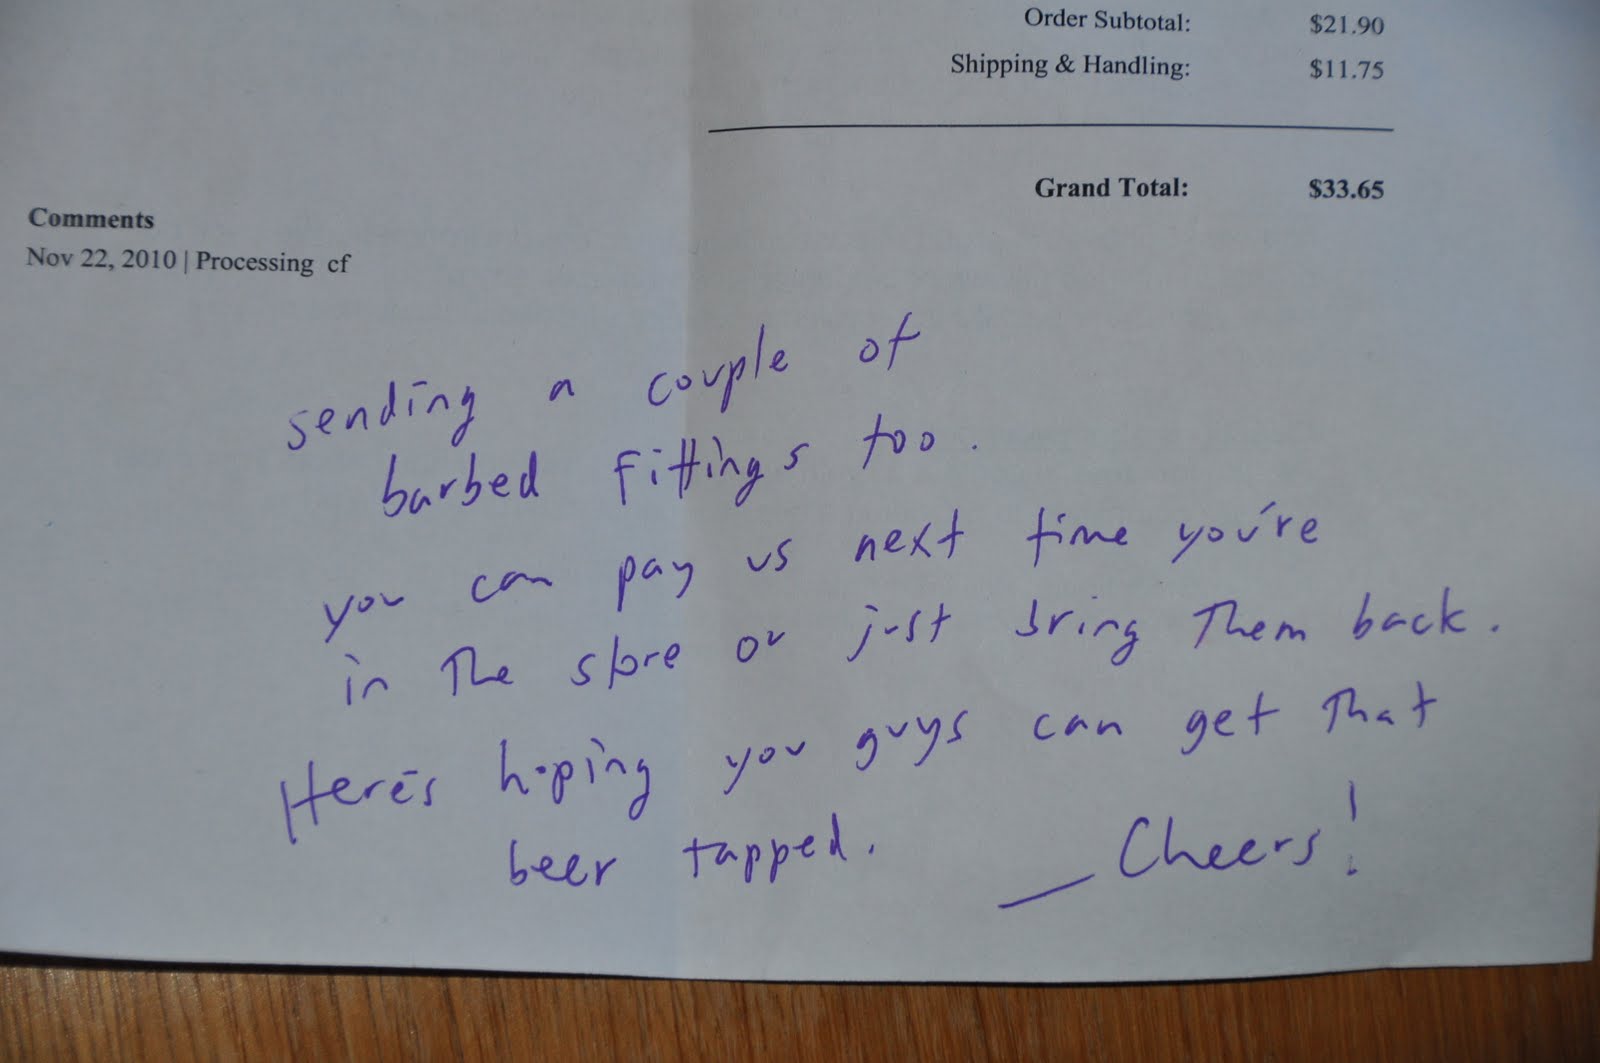 Order Subtotal: $21.90
Shipping & Handling: $11.75
Grand Total: $33.65
Comments
Nov 22, 2010 | Processing cf
sending a couple of
barbed fittings too.
you can pay us next time you're
in the store or just bring them back.
Here's hoping you guys can get that
beer tapped.
— Cheers!